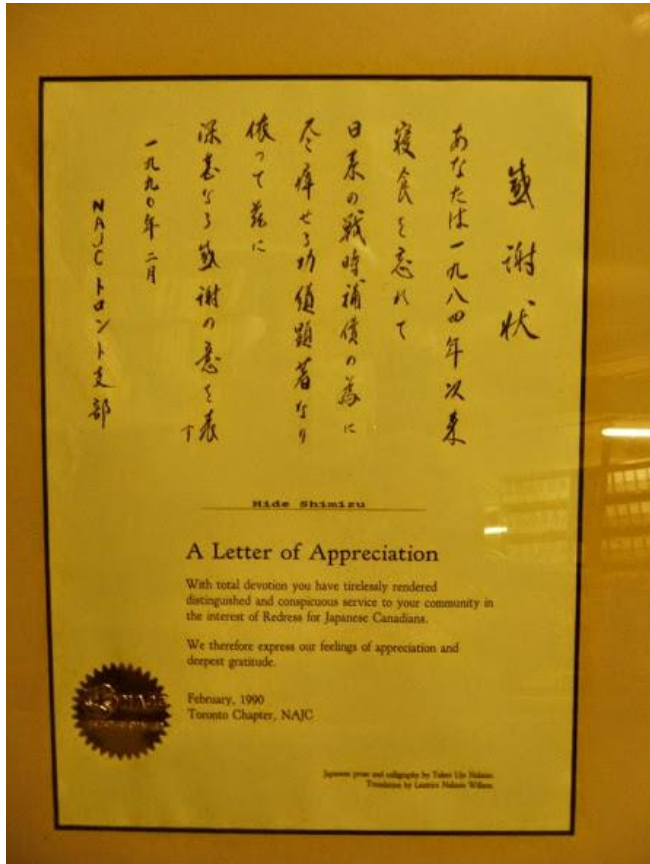 感謝状
あなたは一九八四年次来
寝食を忘れて
日系の戦時補償の為に
尽瘁せる功績顕著なり
依って茲に
深甚なる感謝の意を表す
一九九〇年二月
NAJCトロント支部
Hide Shimizu
A Letter of Appreciation
With total devotion you have tirelessly rendered
distinguished and conspicuous service to your community in
the interest of Redress for Japanese Canadians.
We therefore express our feelings of appreciation and
deepest gratitude.
February, 1990
Toronto Chapter, NAJC
NAJC
Japanese prose and calligraphy by Takeo Ujo Nakano
Translation by Leatrice Nakano Willson